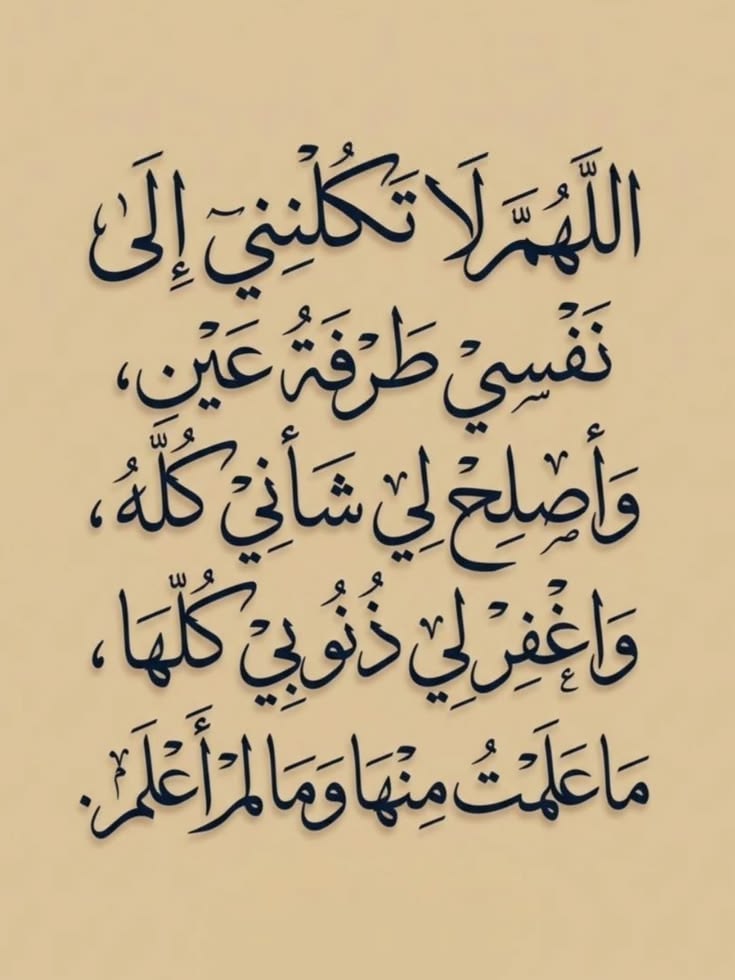 اللَّهُمَّ لَا تَكُلْنِنِي إِلَى
نَفْسِيْ طَرْفَةُ عَيْنٍ،
وَأَصلِحْ لِي شَأنِيْ كُلَّهُ،
وَاغْفِرْ لِي ذُنُوبِيْ كُلّهَا،
مَا عَلَمْتُ مِنْهَا وَمَا لمْ أَعْلَمْ.